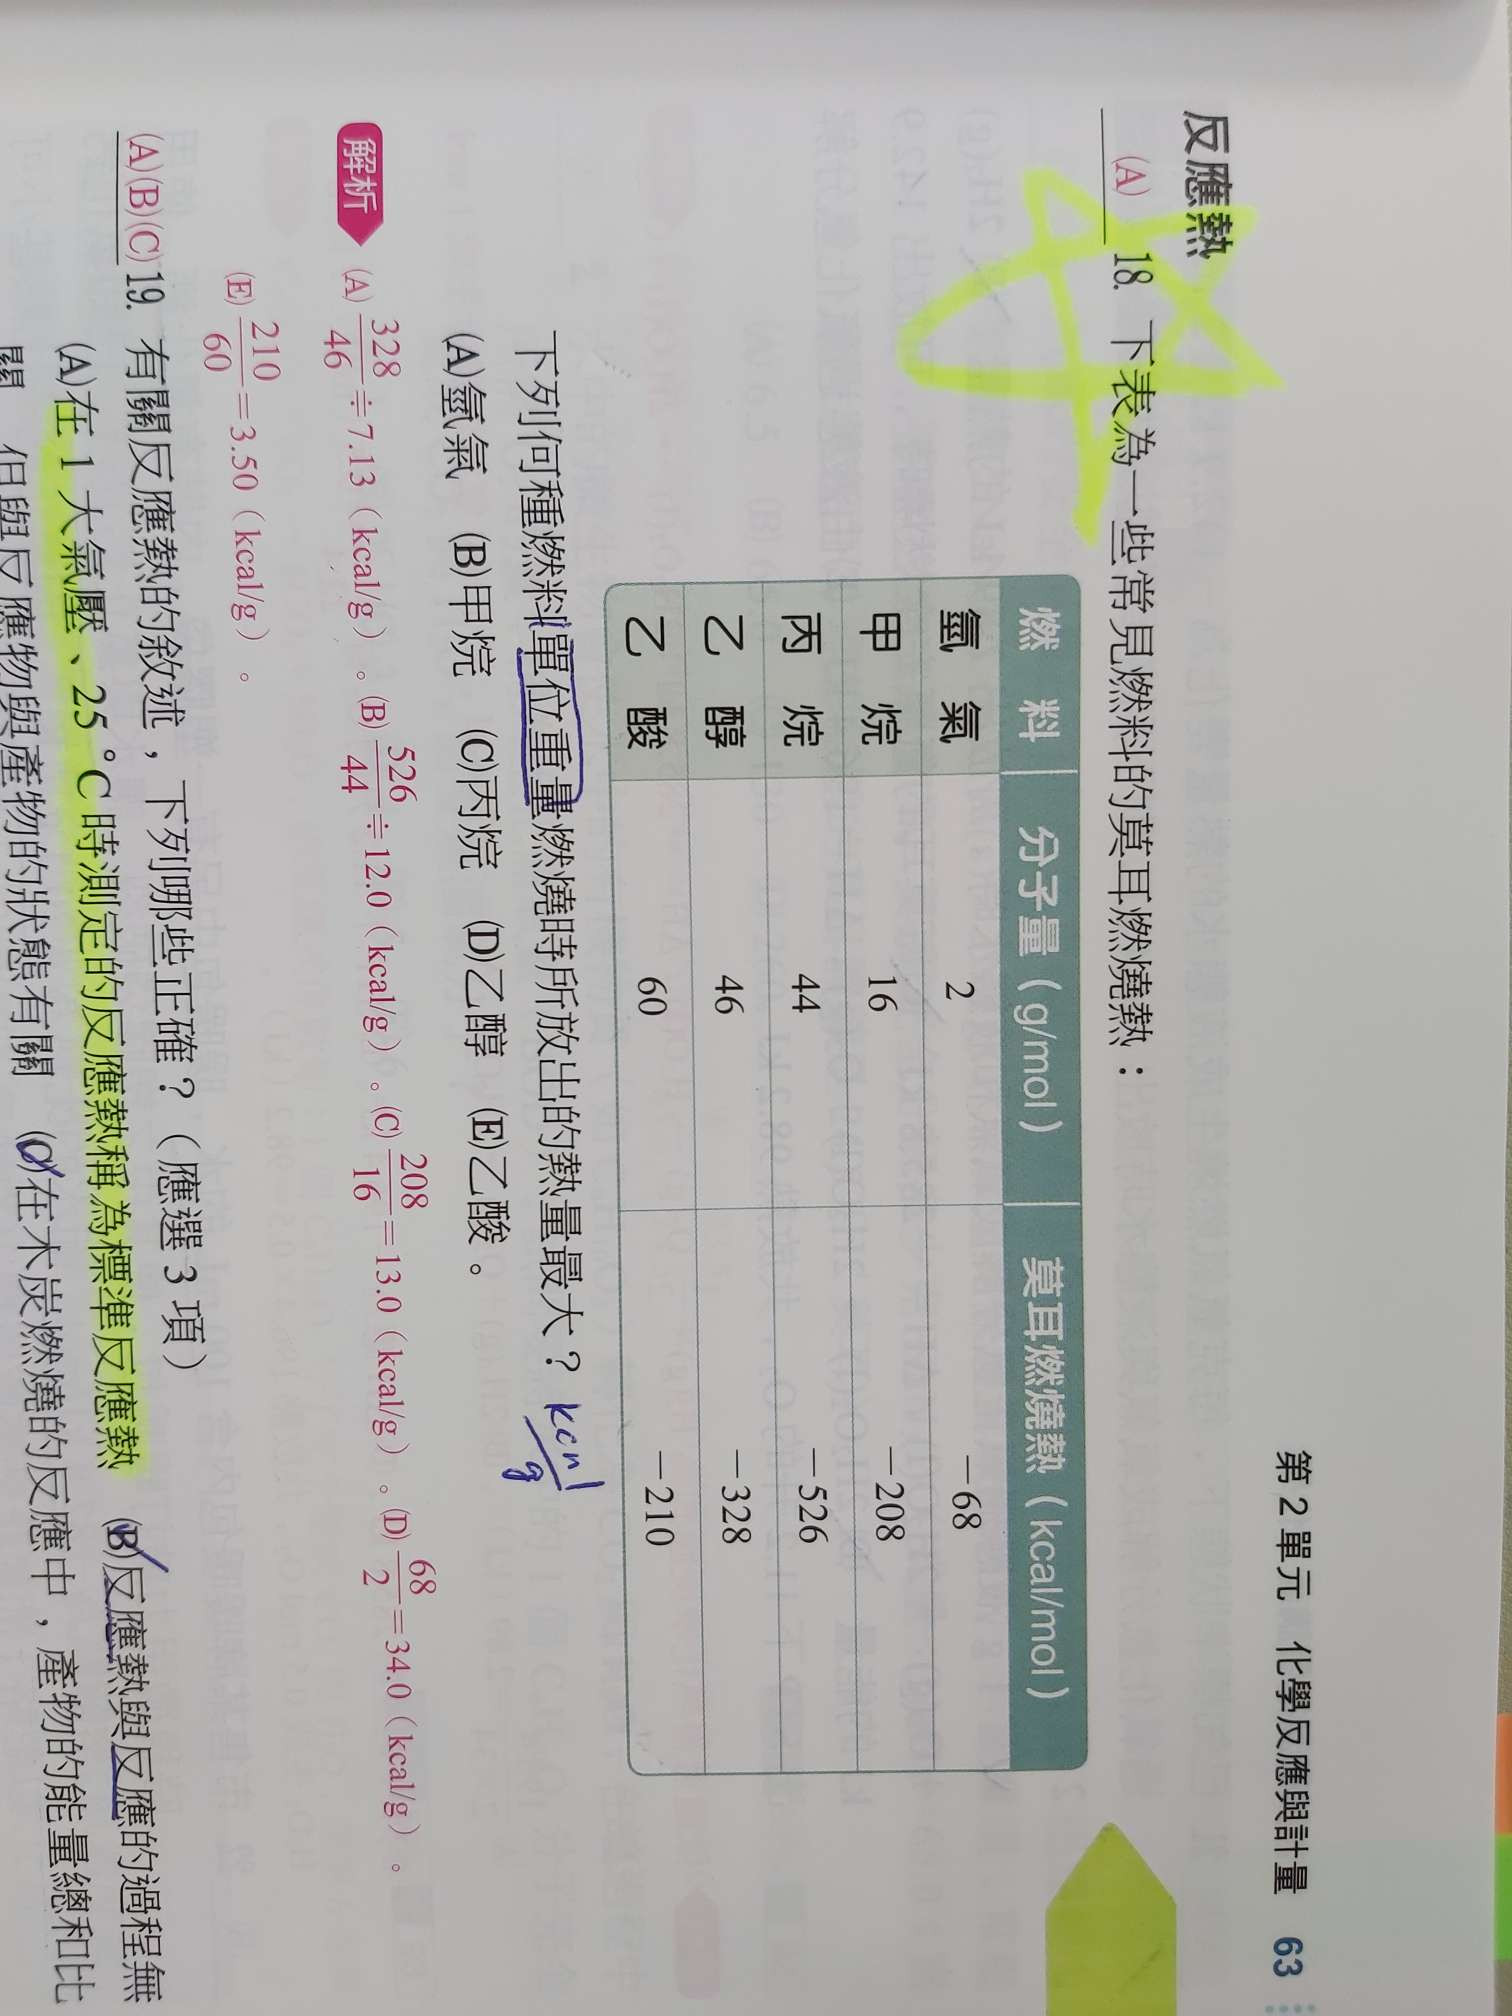 第2單元 化學反應與計量 63
反應熱
(A) 18. 下表為一些常見燃料的莫耳燃燒熱：
燃料 分子量（g/mol） 莫耳燃燒熱（kcal/mol）
氫氣 2 －68
甲烷 16 －208
丙烷 44 －526
乙醇 46 －328
乙酸 60 －210
下列何種燃料單位重量燃燒時所放出的熱量最大？ kcal/g
(A)氫氣 (B)甲烷 (C)丙烷 (D)乙醇 (E)乙酸。
解析 (A) 328/46 ≑7.13（kcal/g）。(B) 526/44 ≑12.0（kcal/g）。(C) 208/16 =13.0（kcal/g）。(D) 68/2 =34.0（kcal/g）。
(E) 210/60 =3.50（kcal/g）。
(A)(B)(C) 19. 有關反應熱的敘述，下列哪些正確？（應選3項）
(A)在1大氣壓、25°C時測定的反應熱稱為標準反應熱 (B)反應熱與反應的過程無
關，但與反應物與產物的狀態有關 (C)在木炭燃燒的反應中，產物的能量總和比